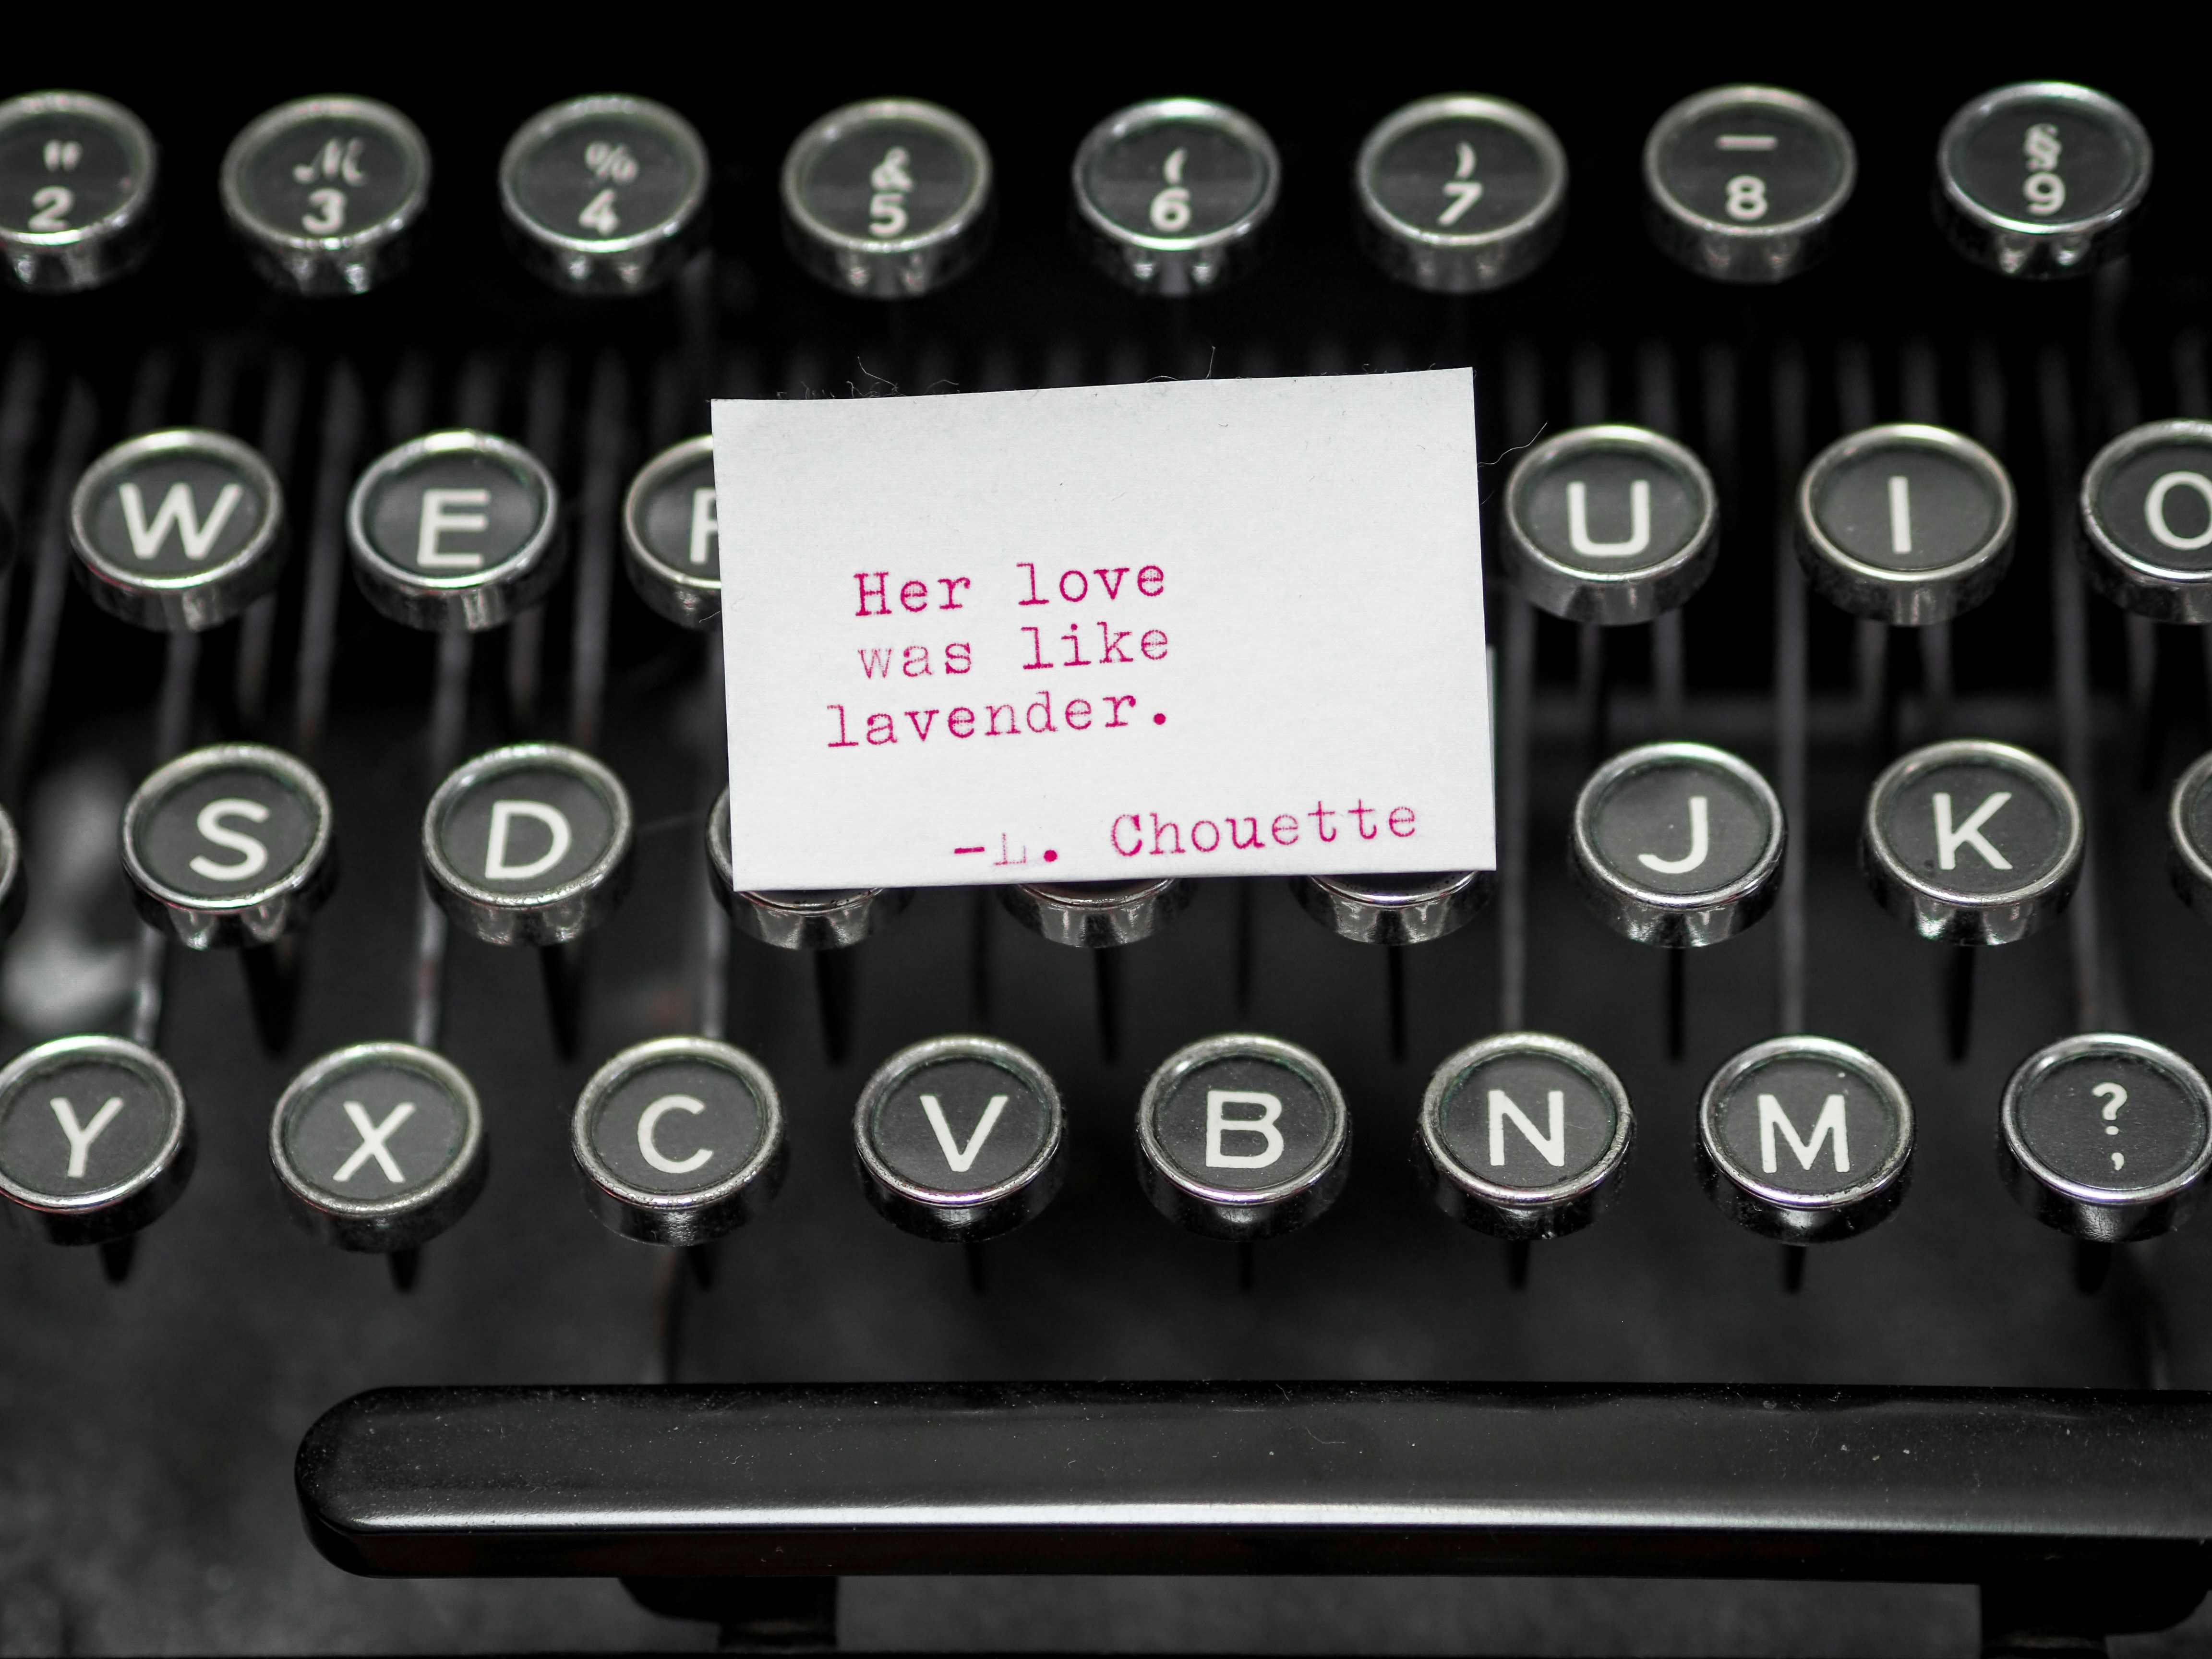 " ℳ % & ( ) — §
2 3 4 5 6 7 8 9
W E U I O
Her love
was like
lavender.
-L. Chouette
S D J K
Y X C V B N M ? ,